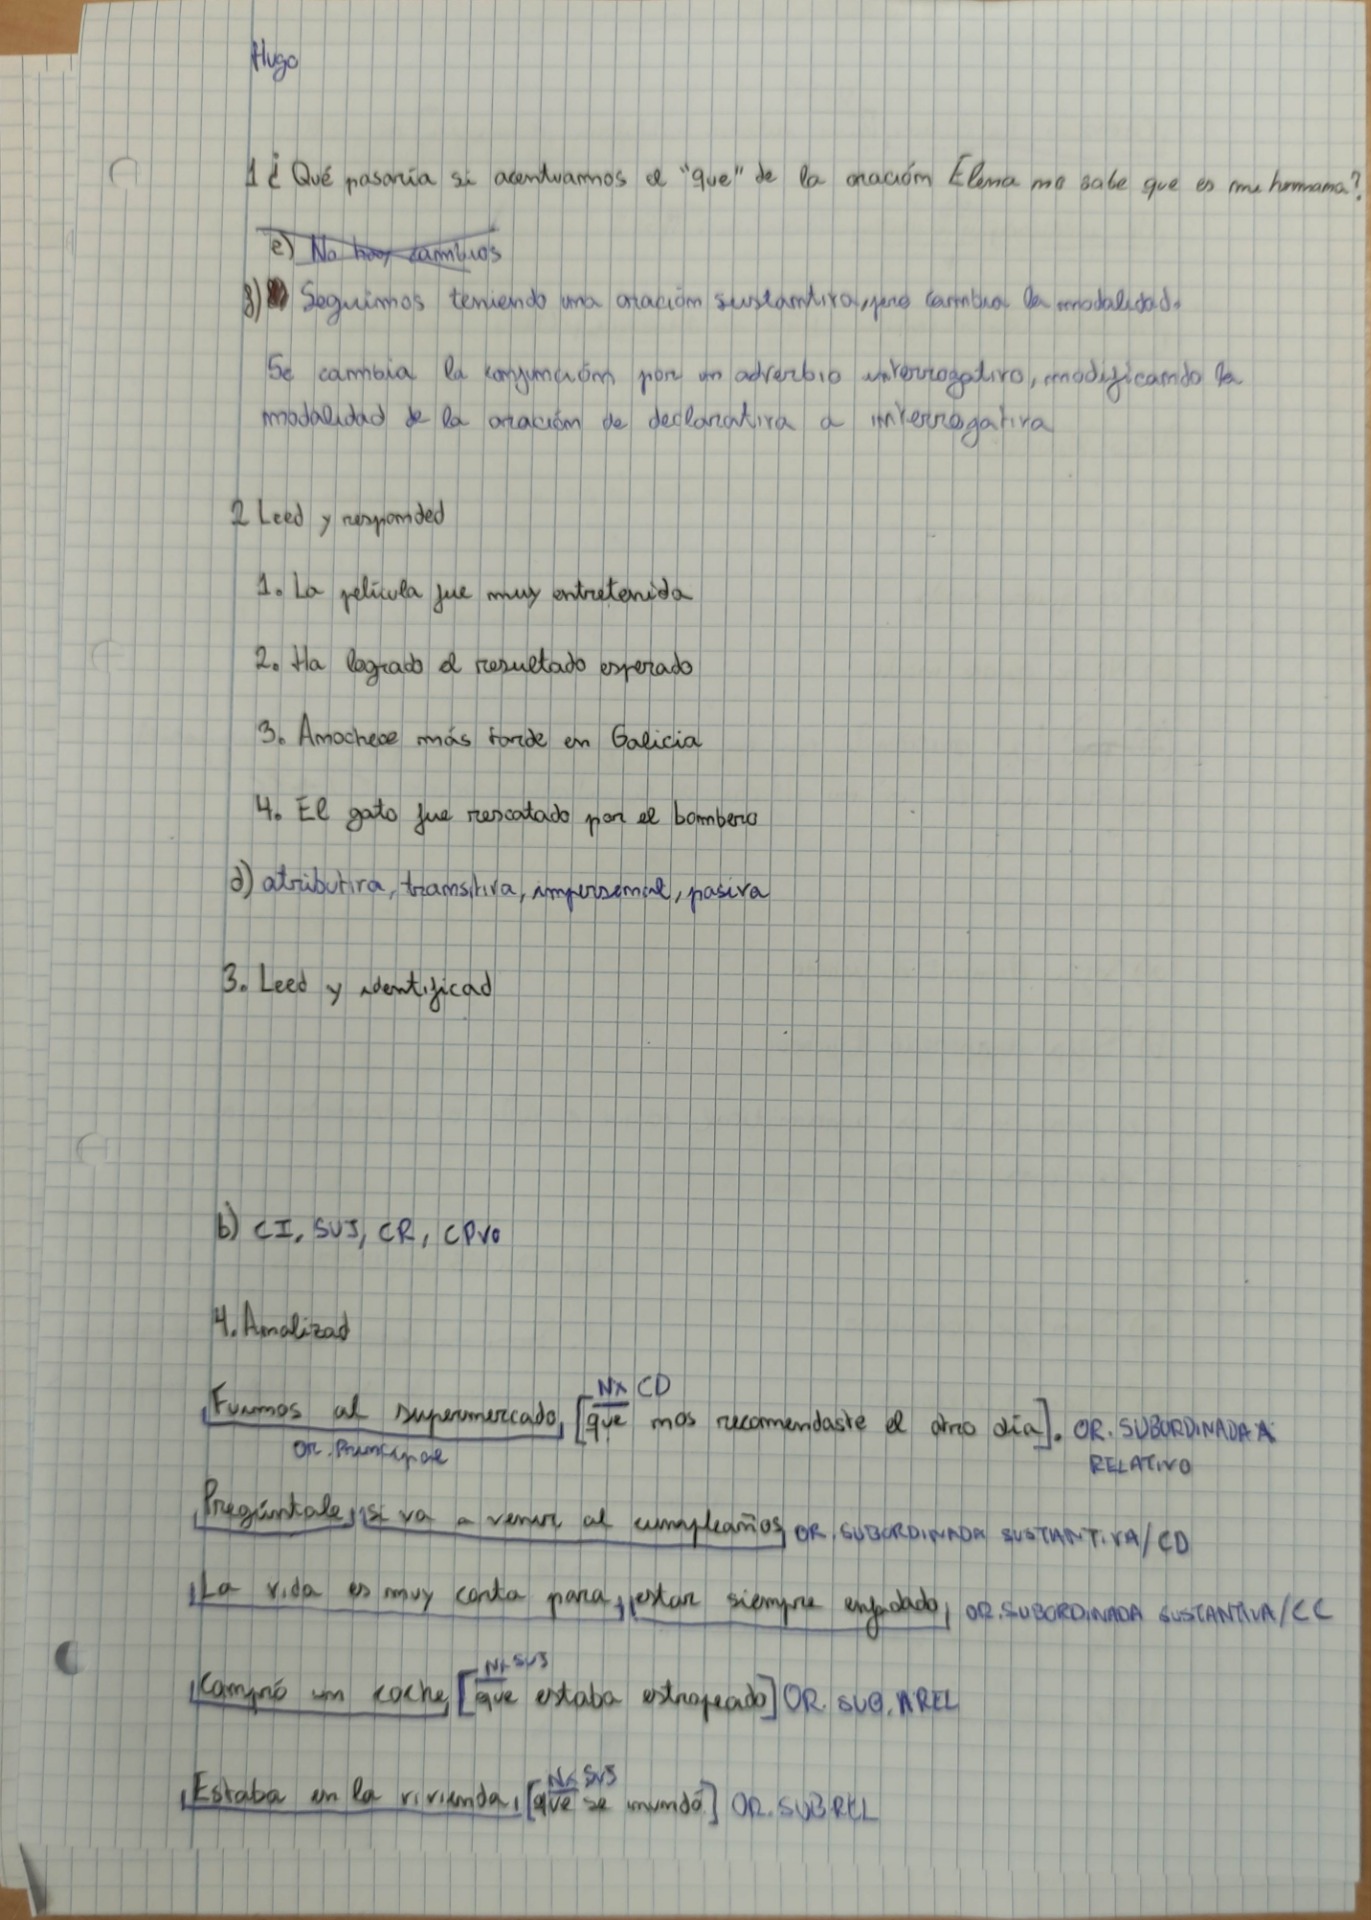 Hugo
1 ¿Qué pasaría si acentuamos el "que" de la oración Elena no sabe que es mi hermana?
e) No hay cambios
g) Seguimos teniendo una oración sustantiva, pero cambia la modalidad.
Se cambia la conjunción por un adverbio interrogativo, modificando la
modalidad de la oración de declarativa a interrogativa
2 Leed y responded
1. La película fue muy entretenida
2. Ha logrado el resultado esperado
3. Anochece más tarde en Galicia
4. El gato fue rescatado por el bombero
d) atributiva, transitiva, impersonal, pasiva
3. Leed y identificad
b) CI, SUJ, CR, CPVO
4. Analizad
NX CD
Fuimos al supermercado [que nos recomendaste el otro día]. OR. SUBORDINADA A
OR. Principal RELATIVO
Pregúntale si va a venir al cumpleaños OR. SUBORDINADA SUSTANTIVA/CD
La vida es muy corta para estar siempre enfadado OR. SUBORDINADA SUSTANTIVA/CC
NX SUJ
Compró un coche [que estaba estropeado] OR. SUB. A REL
NX SUJ
Estaba en la vivienda [que se inundó] OR. SUB REL